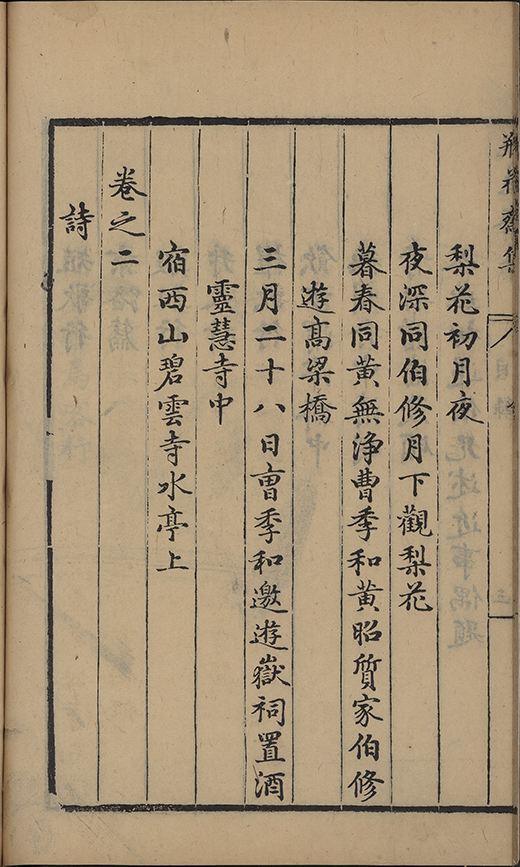 梨花初月夜
夜深同伯修月下觀梨花
暮春同黄無浄曹季和黄昭質家伯修
遊高梁橋
三月二十八日曹季和邀遊嶽祠置酒
靈慧寺中
宿西山碧雲寺水亭上
卷之二
詩